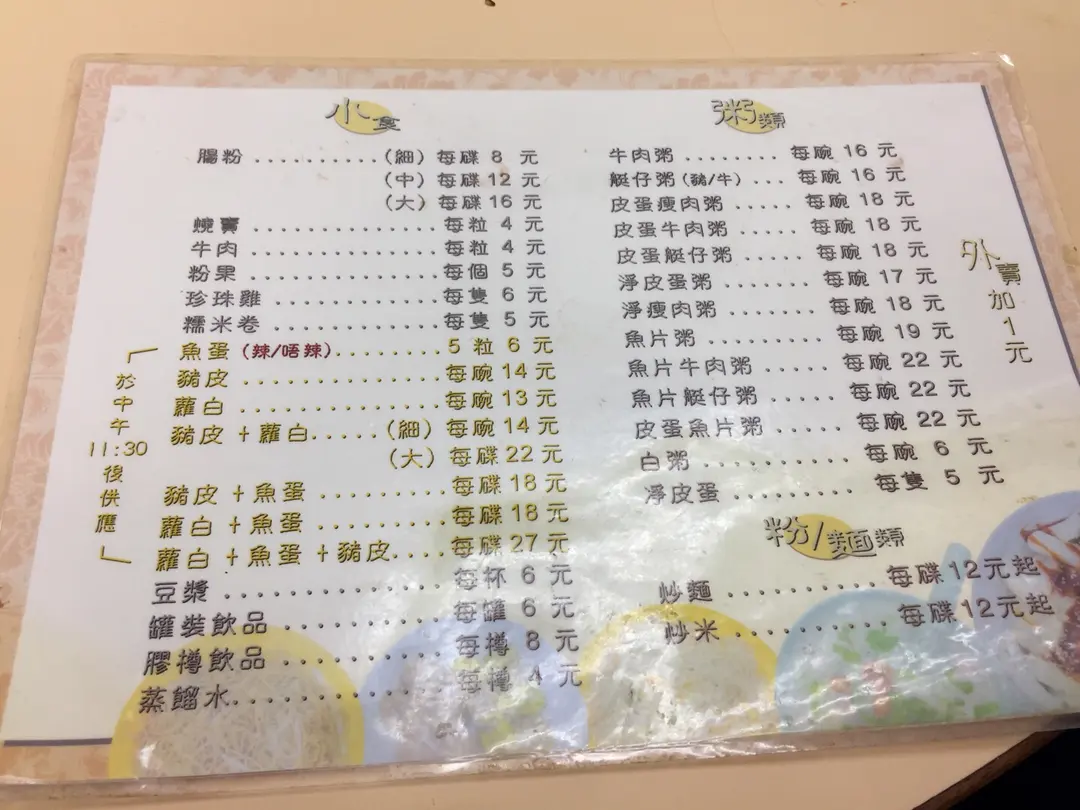 小食
腸粉 ..........（細）每碟 8 元
（中）每碟 12 元
（大）每碟 16 元
燒賣 ................ 每粒 4 元
牛肉 ................ 每粒 4 元
粉果 ................ 每個 5 元
珍珠雞 .............. 每隻 6 元
糯米卷 .............. 每隻 5 元
魚蛋（辣/唔辣）......... 5 粒 6 元
豬皮 ................ 每碗 14 元
蘿白 ................ 每碗 13 元
豬皮＋蘿白.....（細）每碗 14 元
（大）每碟 22 元
豬皮＋魚蛋 .......... 每碟 18 元
蘿白＋魚蛋 ......... 每碟 18 元
蘿白＋魚蛋＋豬皮.... 每碟 27 元
「於中午11:30後供應」
豆漿 ................. 每杯 6 元
罐裝飲品 ............ 每罐 6 元
膠樽飲品 ............ 每樽 8 元
蒸餾水............... 每樽 4 元
粥類
牛肉粥 ........ 每碗 16 元
艇仔粥(豬/牛) ... 每碗 16 元
皮蛋瘦肉粥 ..... 每碗 18 元
皮蛋牛肉粥 ..... 每碗 18 元
皮蛋艇仔粥 ..... 每碗 18 元
淨皮蛋粥 ....... 每碗 17 元
淨瘦肉粥 ....... 每碗 18 元
魚片粥 ......... 每碗 19 元
魚片牛肉粥 ..... 每碗 22 元
魚片艇仔粥 ..... 每碗 22 元
皮蛋魚片粥 ..... 每碗 22 元
白粥 .......... 每碗 6 元
淨皮蛋 ......... 每隻 5 元
外賣加1元
粉/麵類
炒麵 ........... 每碟12元起
炒米 ........... 每碟12元起